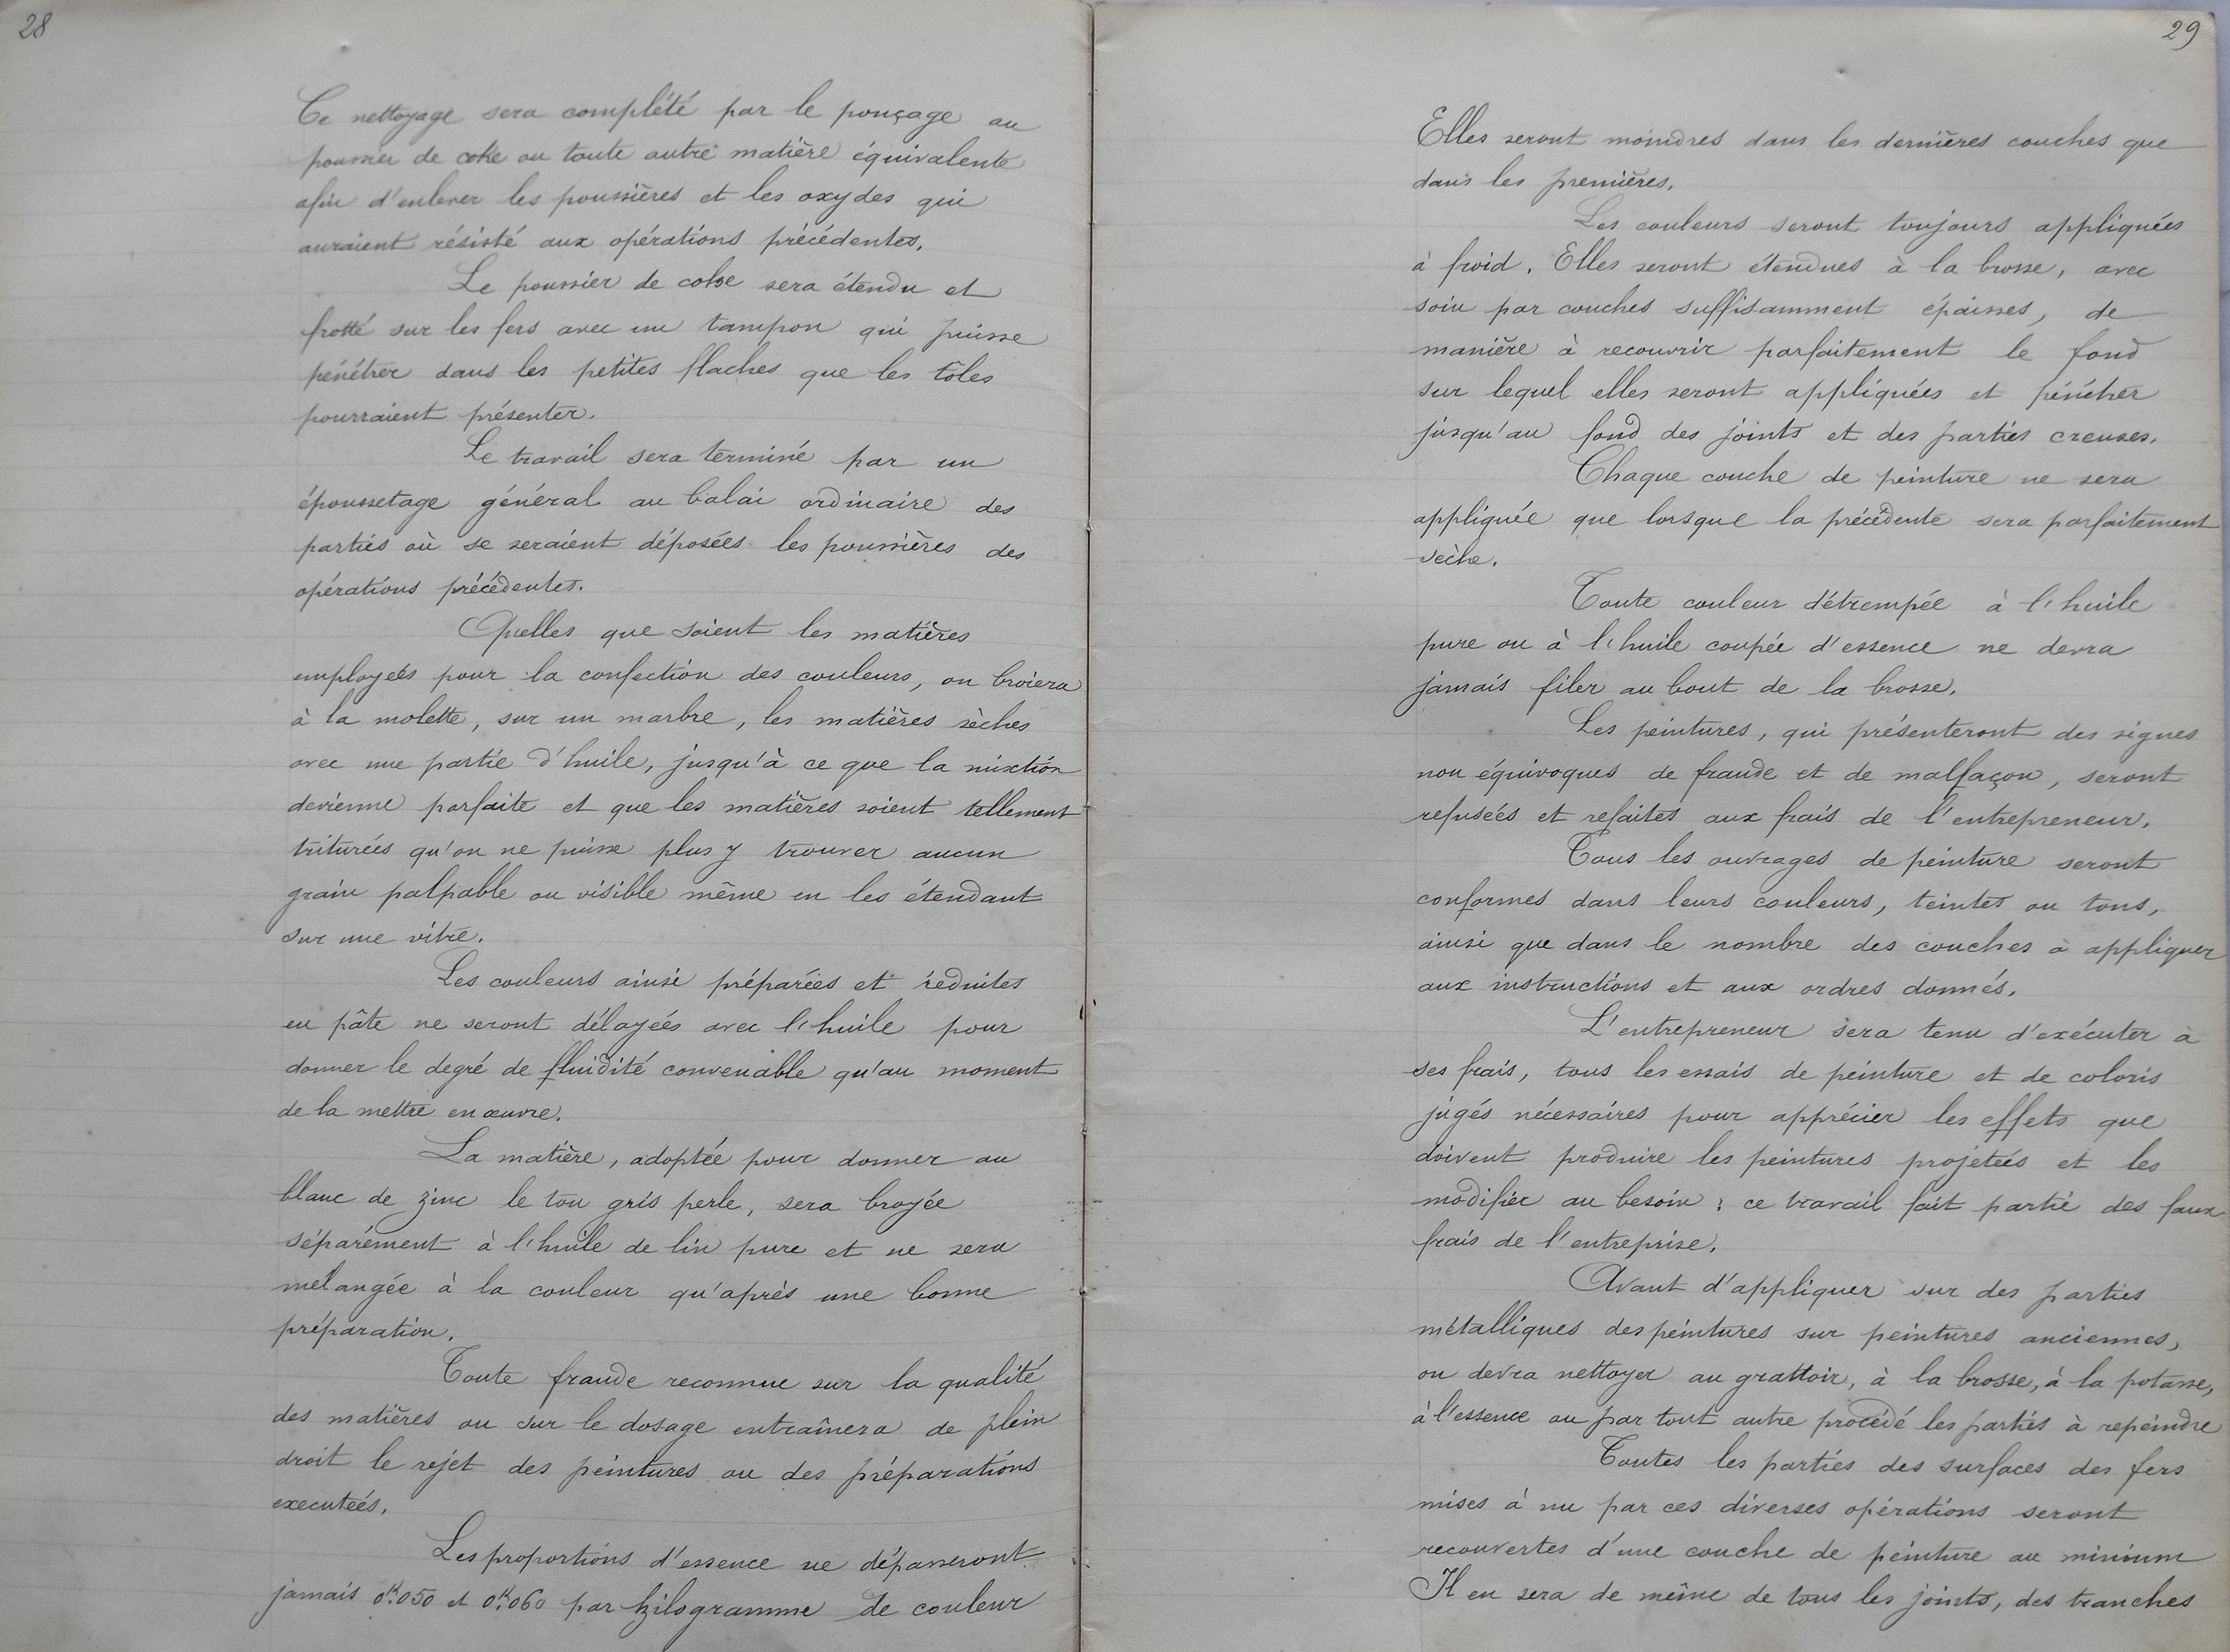 28
Ce nettoyage sera complété par le ponçage au
poussier de coke ou toute autre matière équivalente
afin d'enlever les poussières et les oxydes qui
auraient résisté aux opérations précédentes.
Le poussier de coke sera étendu et
frotté sur les fers avec un tampon qui puisse
pénétrer dans les petites flaches que les tôles
pourraient présenter.
Le travail sera terminé par un
époussetage général au balai ordinaire des
parties où se seraient déposées les poussières des
opérations précédentes.
Quelles que soient les matières
employées pour la confection des couleurs, on broiera
à la molette, sur un marbre, les matières sèches
avec une partie d'huile, jusqu'à ce que la mixtion
devienne parfaite et que les matières soient tellement
triturées qu'on ne puisse plus y trouver aucun
grain palpable ou visible même en les étendant
sur une vitre.
Les couleurs ainsi préparées et réduites
en pâte ne seront délayées avec l'huile pour
donner le degré de fluidité convenable qu'au moment
de la mettre en œuvre.
La matière, adoptée pour donner au
blanc de zinc le ton gris perle, sera broyée
séparément à l'huile de lin pure et ne sera
mélangée à la couleur qu'après une bonne
préparation.
Toute fraude reconnue sur la qualité
des matières ou sur le dosage entraînera de plein
droit le rejet des peintures ou des préparations
executées.
Les proportions d'essence ne dépasseront
jamais 0K.050 et 0K.060 par kilogramme de couleur
29
Elles seront moindres dans les dernières couches que
dans les premières.
Les couleurs seront toujours appliquées
à froid. Elles seront étendues à la brosse, avec
soin par couches suffisamment épaisses, de
manière à recouvrir parfaitement le fond
sur lequel elles seront appliquées et pénétrer
jusqu'au fond des joints et des parties creuses.
Chaque couche de peinture ne sera
appliquée que lorsque la précédente sera parfaitement
sèche.
Toute couleur détrempée à l'huile
pure ou à l'huile coupée d'essence ne devra
jamais filer au bout de la brosse.
Les peintures, qui présenteront des signes
non équivoques de fraude et de malfaçon, seront
refusées et refaites aux frais de l'entrepreneur.
Tous les ouvrages de peinture seront
conformes dans leurs couleurs, teintes ou tons,
ainsi que dans le nombre des couches à appliquer
aux instructions et aux ordres donnés.
L'entrepreneur sera tenu d'exécuter à
ses frais, tous les essais de peinture et de coloris
jugés nécessaires pour apprécier les effets que
doivent produire les peintures projetées et les
modifier au besoin ; ce travail fait partie des faux
frais de l'entreprise.
Avant d'appliquer sur des parties
métalliques des peintures sur peintures anciennes,
on devra nettoyer au grattoir, à la brosse, à la potasse,
à l'essence ou par tout autre procédé les parties à repeindre
Toutes les parties des surfaces des fers
mises à nu par ces diverses opérations seront
recouvertes d'une couche de peinture au minium
Il en sera de même de tous les joints, des tranches